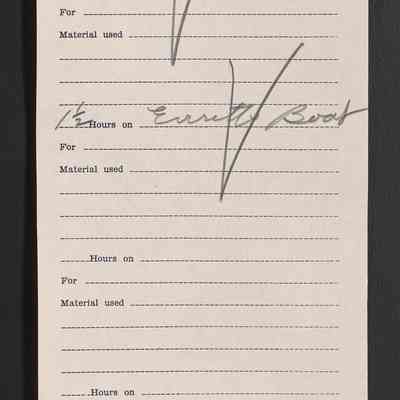 For
Material used
1½ Hours on Everetts Boat
For
Material used
Hours on
For
Material used
Hours on